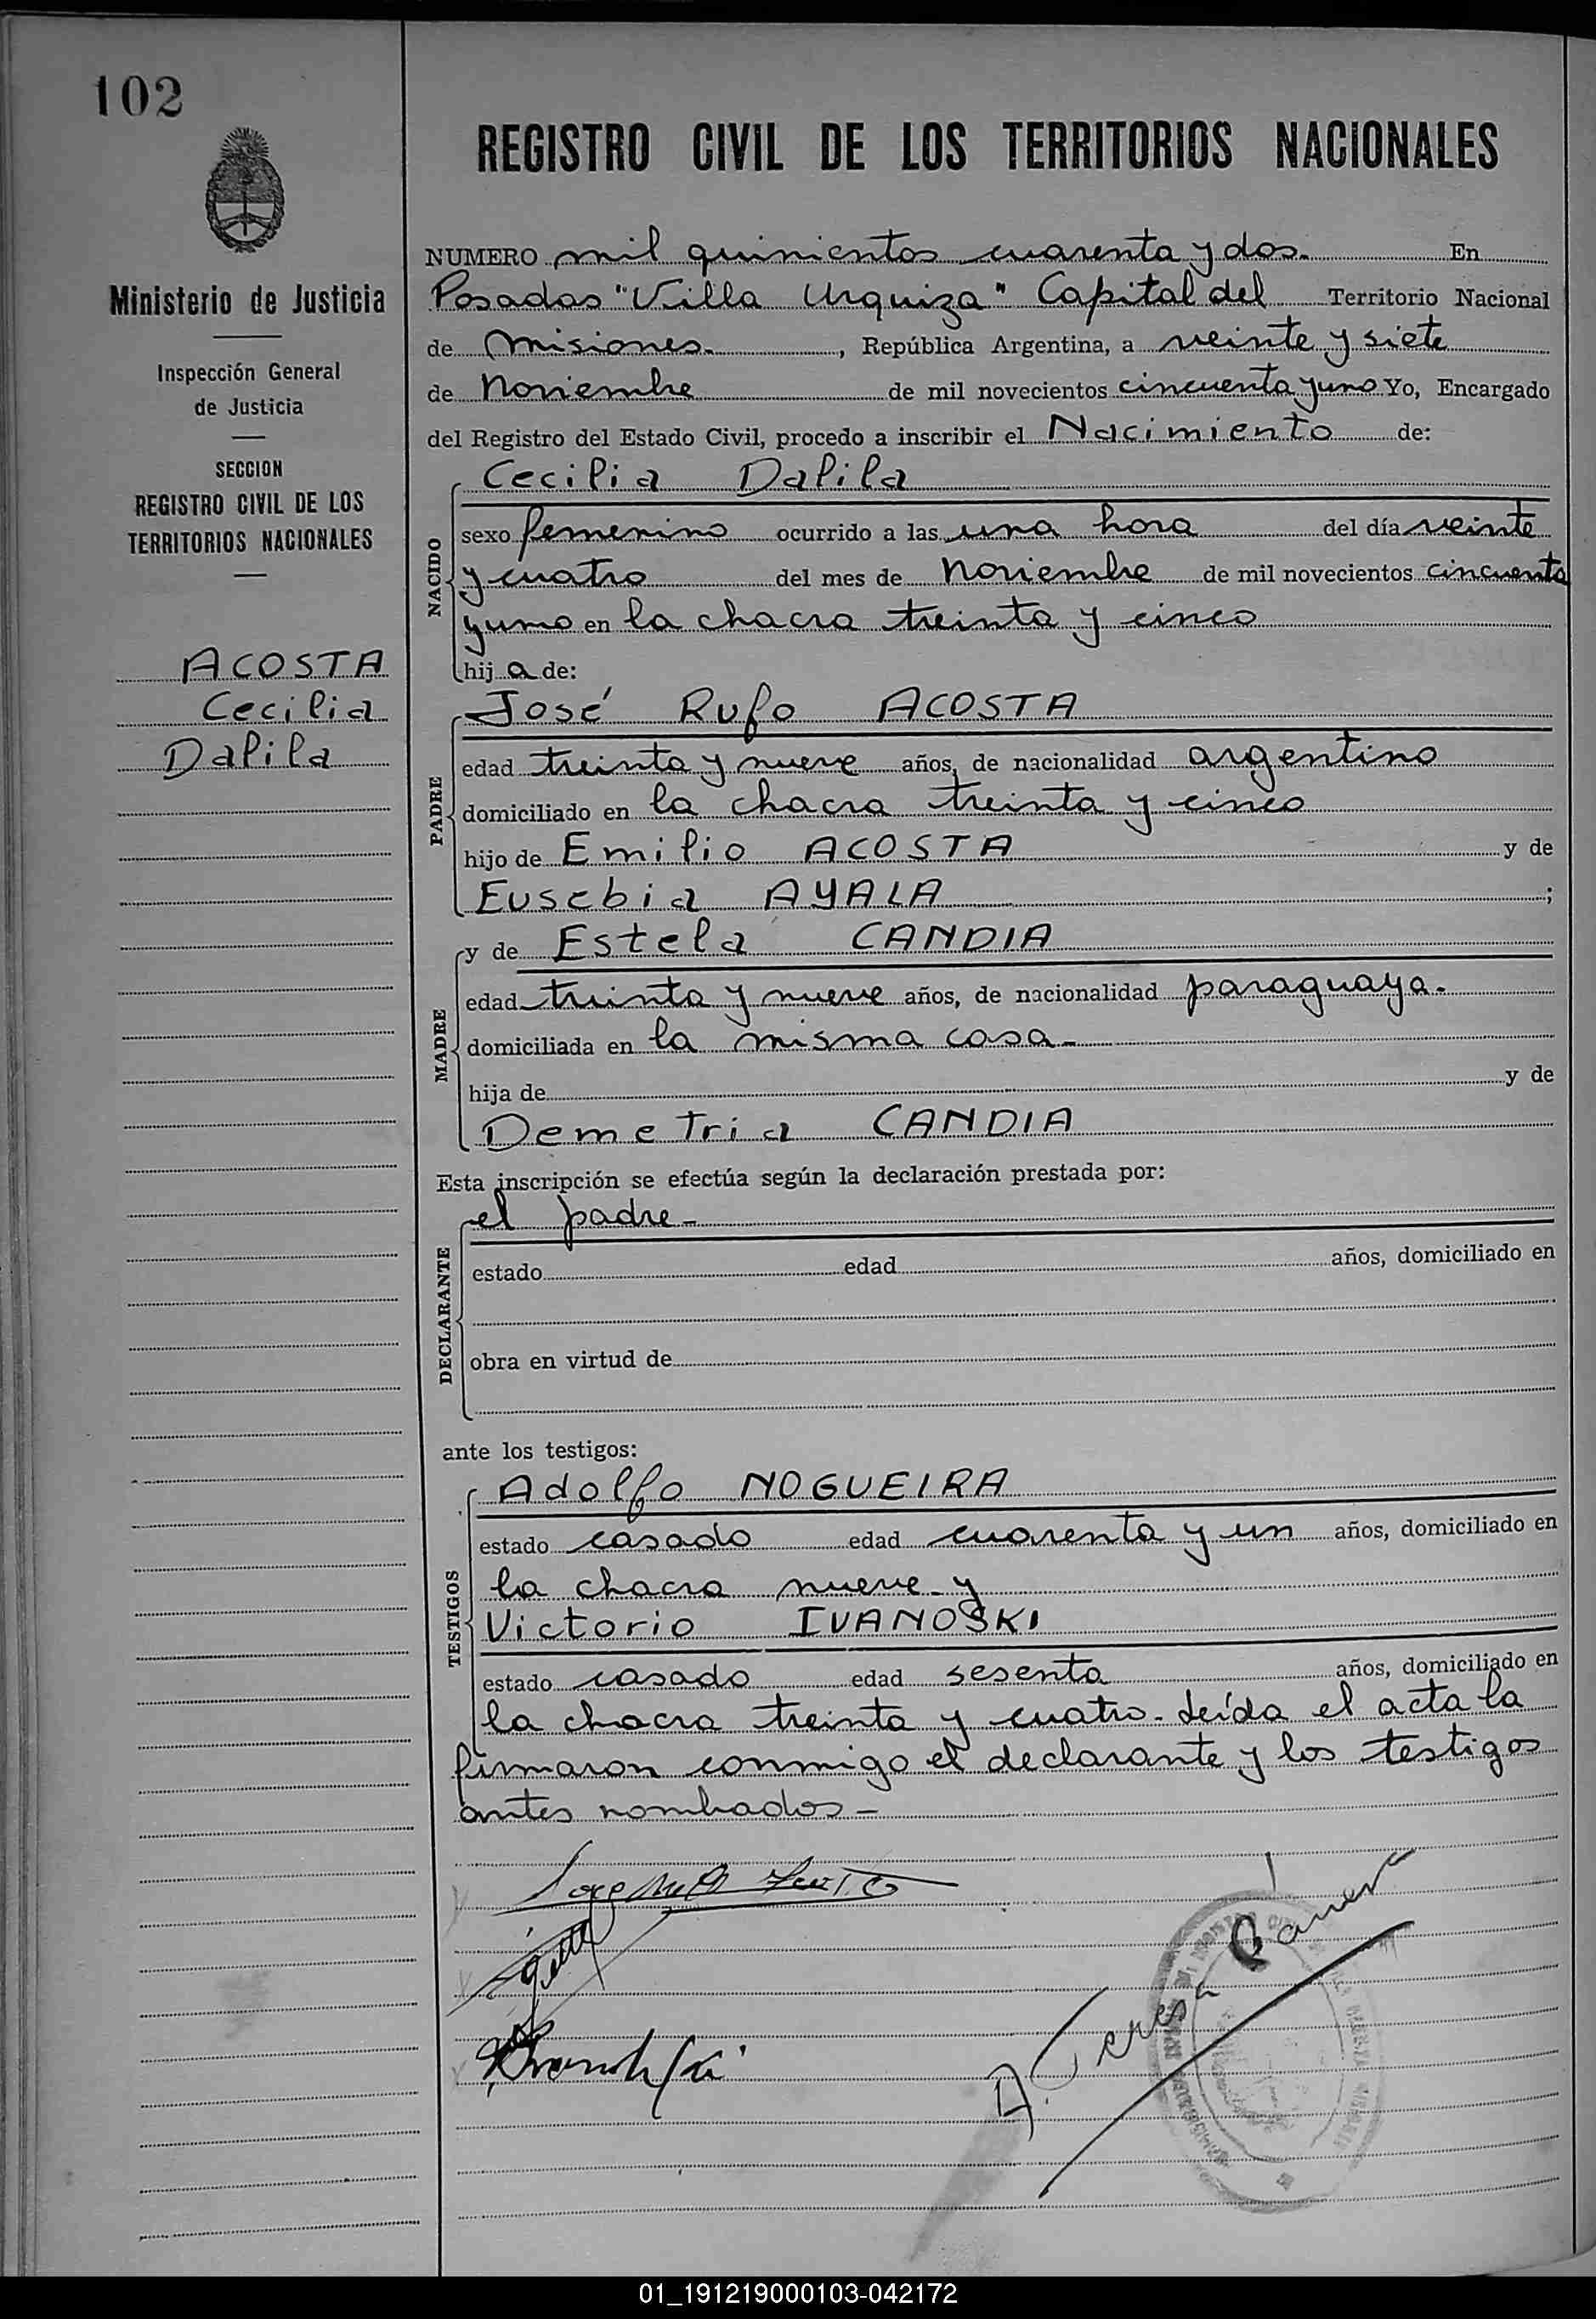 102
REGISTRO CIVIL DE LOS TERRITORIOS NACIONALES
Ministerio de Justicia
Inspección General
de Justicia
SECCION
REGISTRO CIVIL DE LOS
TERRITORIOS NACIONALES
ACOSTA
Cecilia
Dalila
NUMERO mil quinientos cuarenta y dos. En
Posadas "Villa Urquiza" Capital del Territorio Nacional
de Misiones. , República Argentina, a veinte y siete
de Noviembre de mil novecientos cincuenta y uno Yo, Encargado
del Registro del Estado Civil, procedo a inscribir el Nacimiento de:
Cecilia Dalila
NACIDO
sexo femenino ocurrido a las una hora del día veinte
y cuatro del mes de Noviembre de mil novecientos cincuenta
y uno en la chacra treinta y cinco
hij a de:
José Rufo ACOSTA
PADRE
edad treinta y nueve años, de nacionalidad argentino
domiciliado en la chacra treinta y cinco
hijo de Emilio ACOSTA y de
Eusebia AYALA ;
y de Estela CANDIA
MADRE
edad treinta y nueve años, de nacionalidad paraguaya.
domiciliada en la misma casa-
hija de y de
Demetria CANDIA
Esta inscripción se efectúa según la declaración prestada por:
el padre-
DECLARANTE
estado edad años, domiciliado en
obra en virtud de
ante los testigos:
Adolfo NOGUEIRA
TESTIGOS
estado casado edad cuarenta y un años, domiciliado en
la chacra nueve-y
Victorio IVANOSKI
estado casado edad sesenta años, domiciliado en
la chacra treinta y cuatro-Leída el acta la
firmaron conmigo el declarante y los testigos
antes nombrados-
A. Teresa
01_191219000103-042172